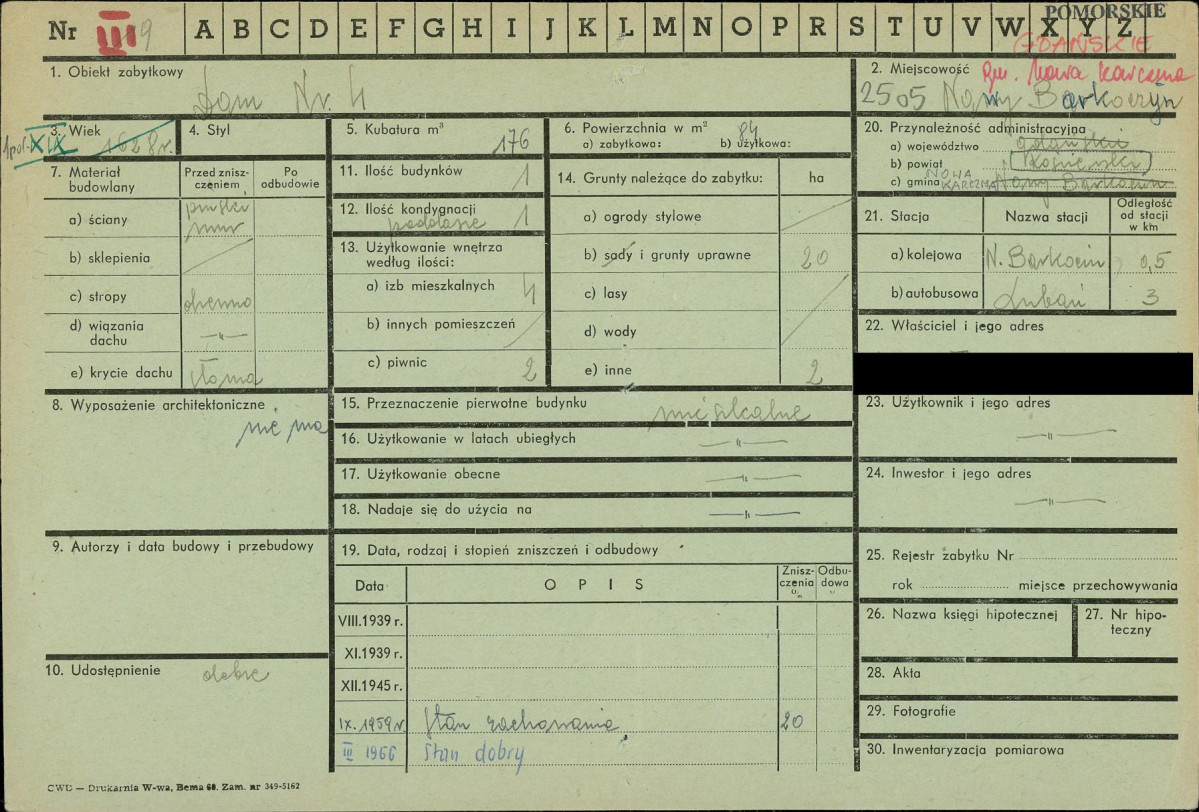 POMORSKIE
Nr III 9 A B C D E F G H I J K L M N O P R S T U V W X Y Z
GDAŃSKIE
gm. Nowa Karczma
1. Obiekt zabytkowy
Dom Nr. 4
2. Miejscowość
2505 Nowy Barkoczyn
3. Wiek
1628 r.
1 poł. XIX
4. Styl
5. Kubatura m³
176
6. Powierzchnia w m²
a) zabytkowa: b) użytkowa:
84
7. Materiał budowlany
Przed zniszczeniem
Po odbudowie
a) ściany
pruski
mur
b) sklepienia
c) stropy
drewno
d) wiązania dachu
—„—
e) krycie dachu
słoma
8. Wyposażenie architektoniczne
nie ma
9. Autorzy i data budowy i przebudowy
10. Udostępnienie
dobre
11. Ilość budynków
1
12. Ilość kondygnacji
poddasze 1
13. Użytkowanie wnętrza według ilości:
a) izb mieszkalnych
4
b) innych pomieszczeń
c) piwnic
2
14. Grunty należące do zabytku: ha
a) ogrody stylowe
b) sady i grunty uprawne
20
c) lasy
d) wody
e) inne
2
15. Przeznaczenie pierwotne budynku
mieszkalne
16. Użytkowanie w latach ubiegłych
—„—
17. Użytkowanie obecne
—„—
18. Nadaje się do użycia na
—„—
19. Data, rodzaj i stopień zniszczeń i odbudowy
Data
O P I S
Zniszczenia %
Odbudowa %
VIII.1939 r.
XI.1939 r.
XII.1945 r.
IX. 1959 r. Stan zachowania 20
III 1966 Stan dobry
20. Przynależność administracyjna
a) województwo gdańskie
b) powiat Kościerski
c) gmina Nowy Barkocin
NOWA KARCZMA
21. Stacja
Nazwa stacji
Odległość od stacji w km
a) kolejowa N. Barkocin 0,5
b) autobusowa Lubań 3
22. Właściciel i jego adres
23. Użytkownik i jego adres
—„—
24. Inwestor i jego adres
—„—
25. Rejestr zabytku Nr
rok miejsce przechowywania
26. Nazwa księgi hipotecznej
27. Nr hipoteczny
28. Akta
29. Fotografie
30. Inwentaryzacja pomiarowa
CWD — Drukarnia W-wa, Bema 60. Zam. nr 349-5162